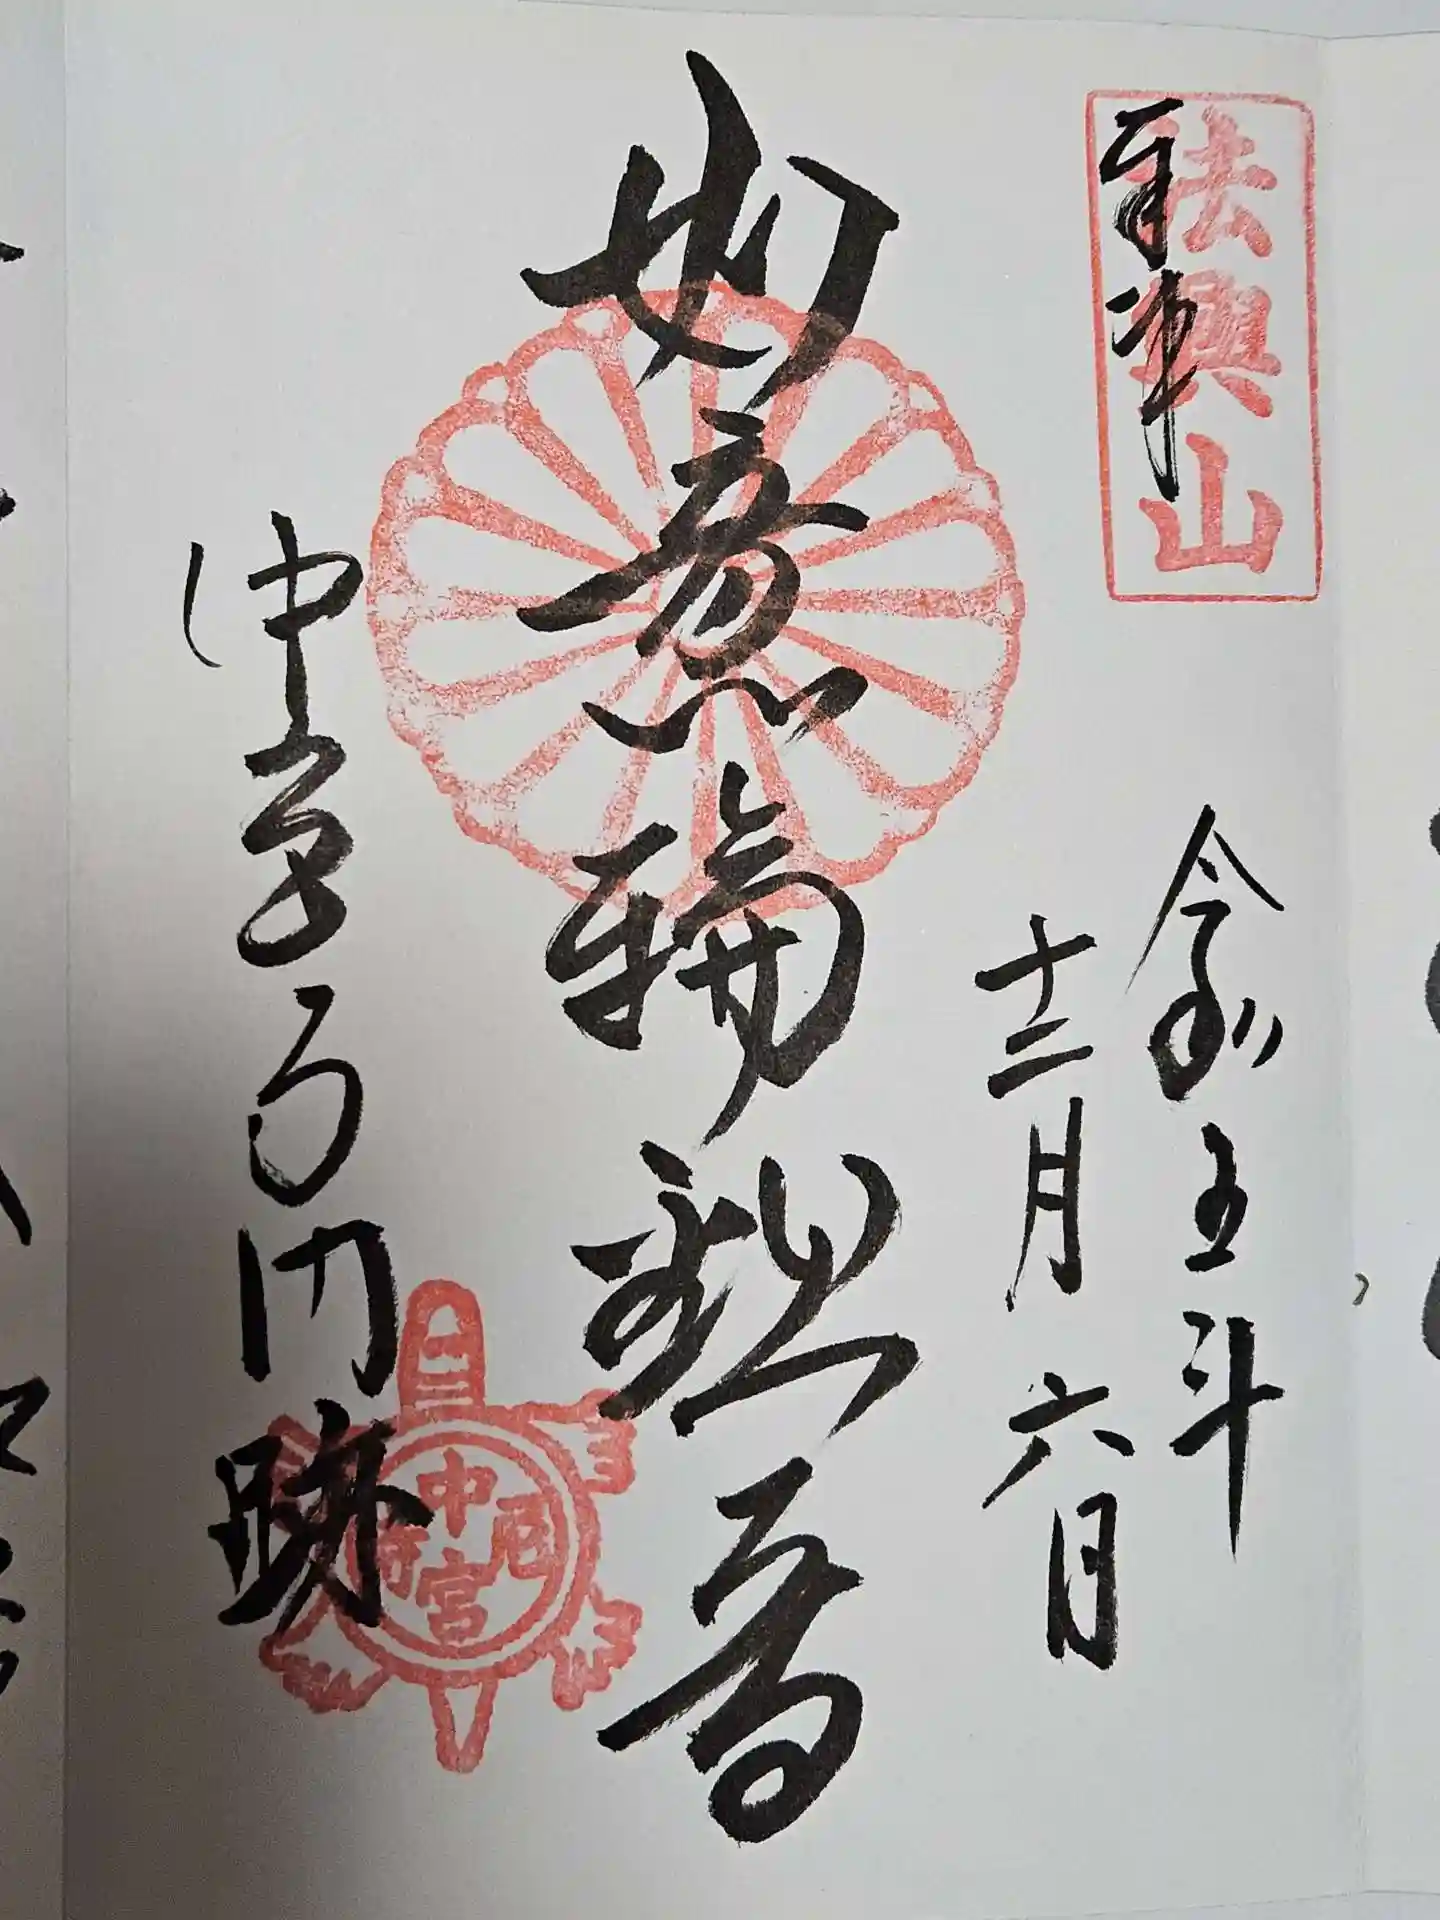 法興山
奉拝
令和五年
十二月六日
如意輪観音
中宮寺門跡
中宮